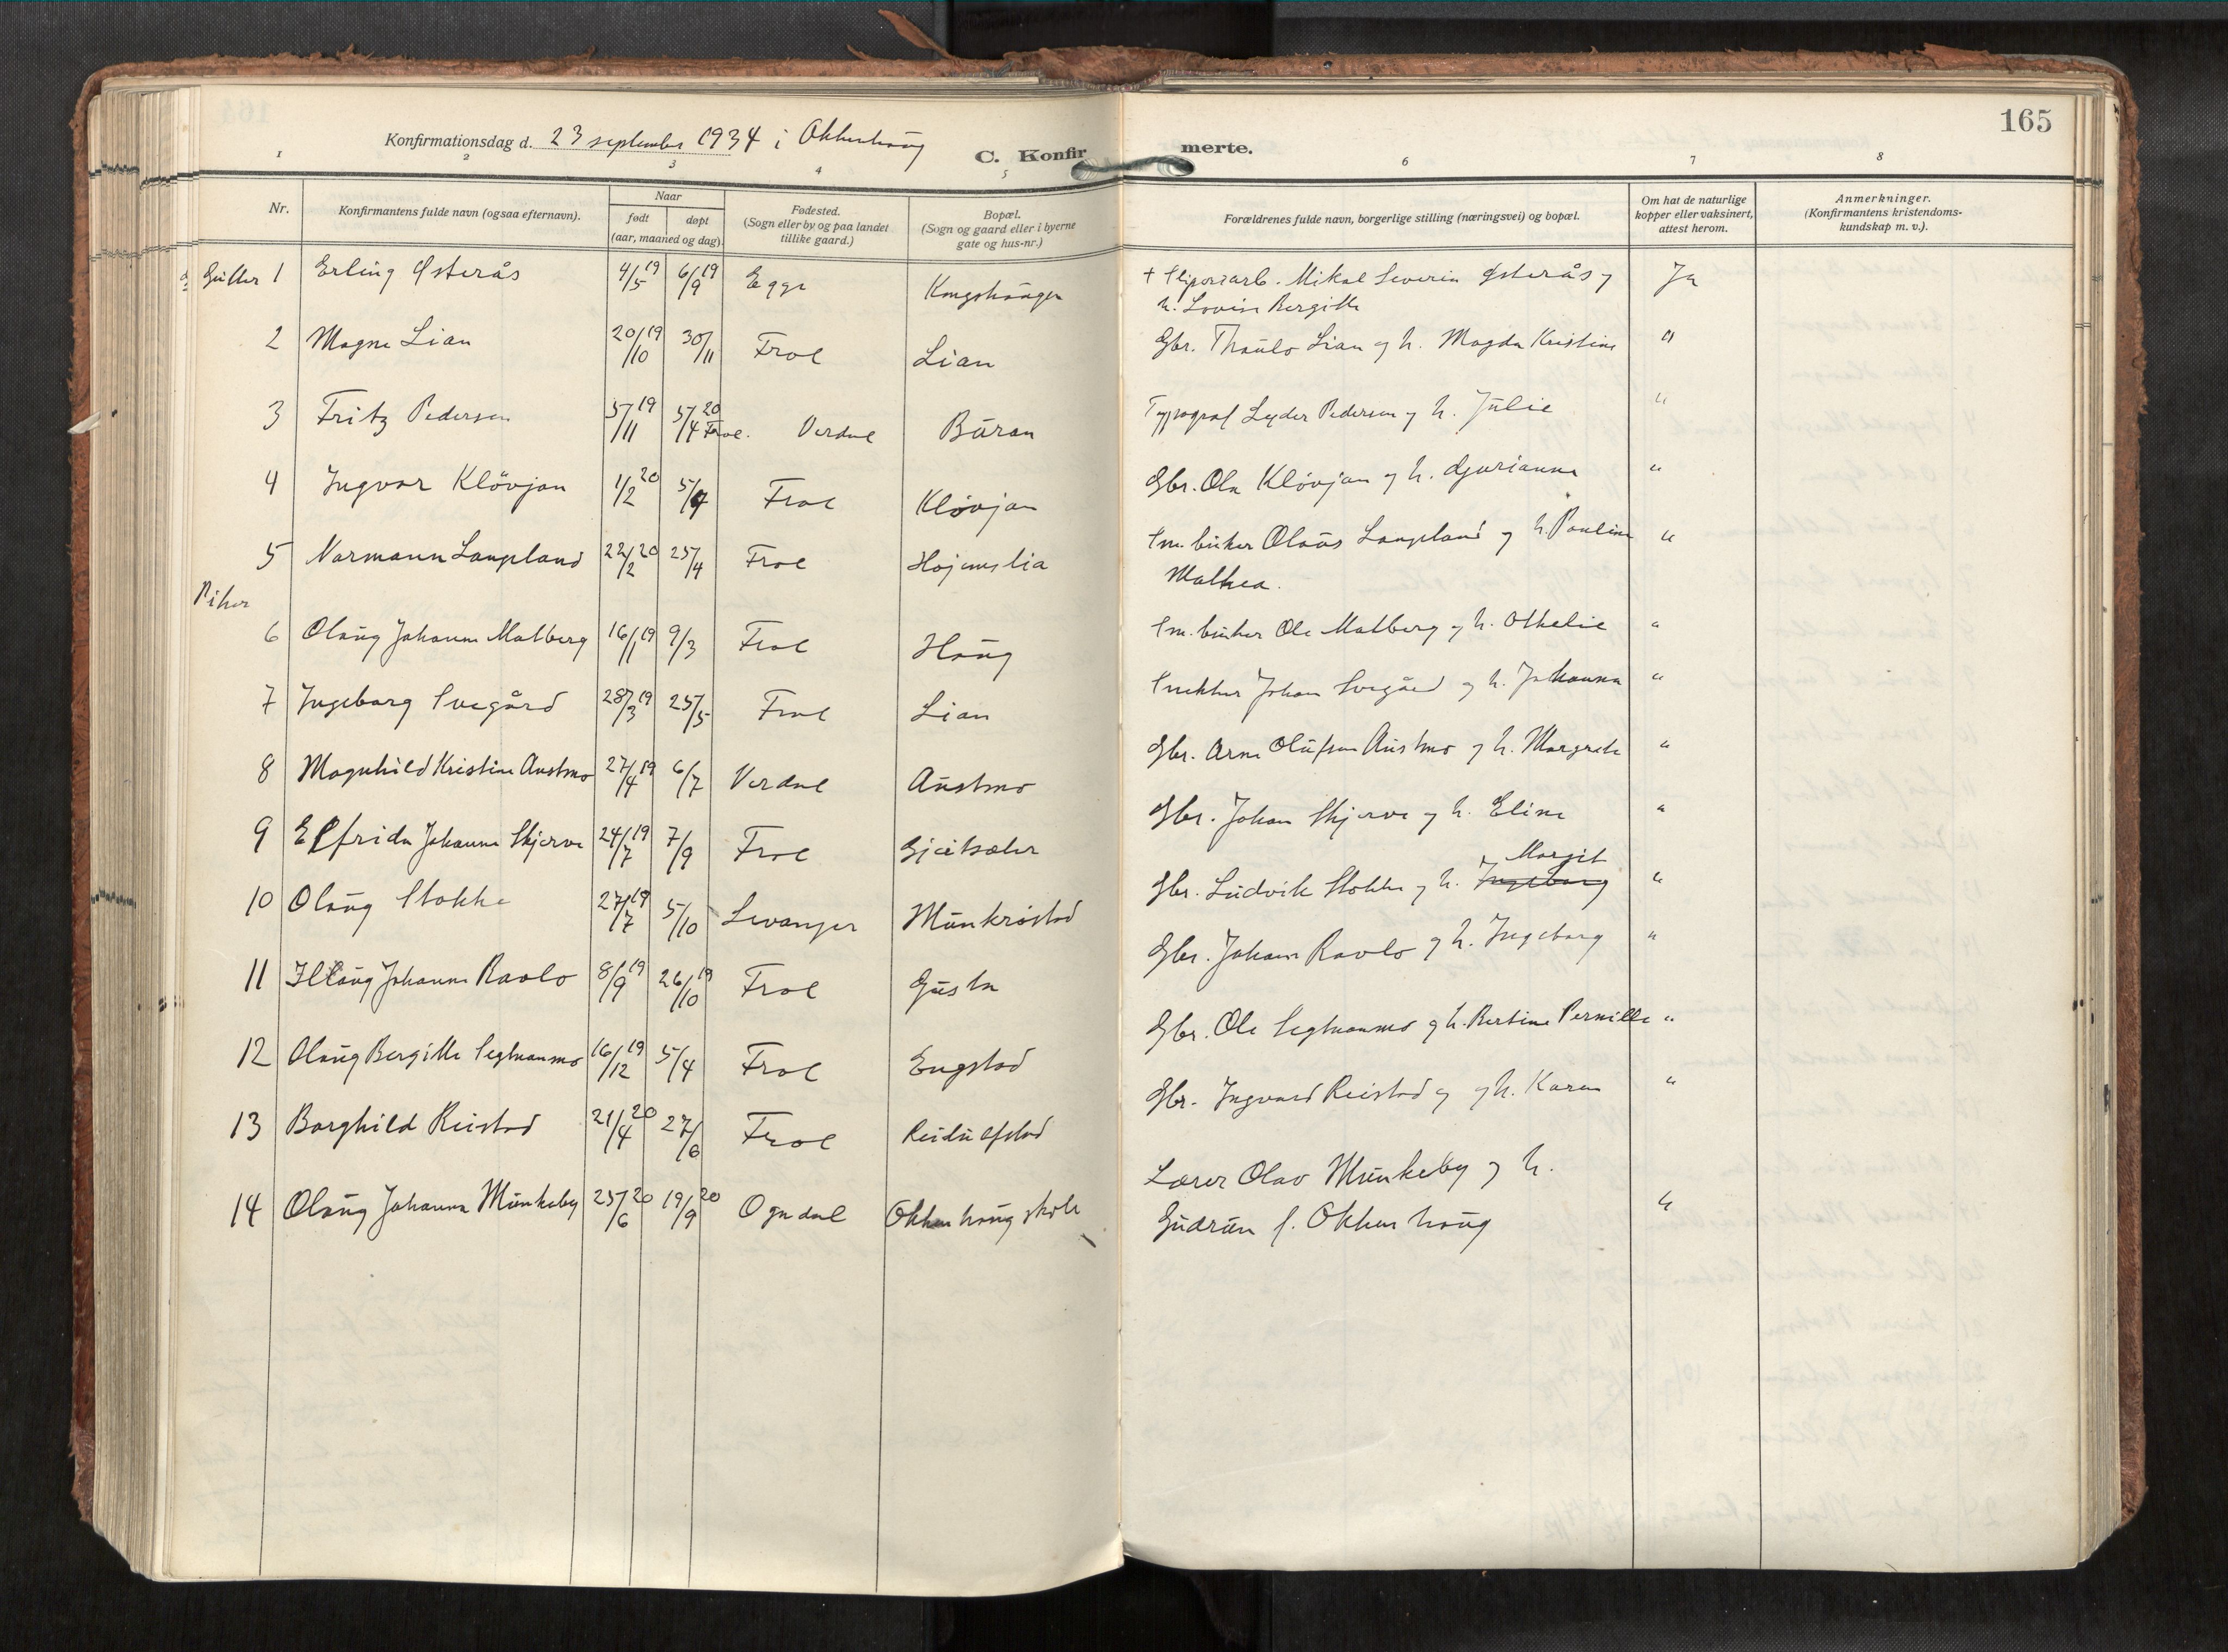 165
Konfirmationsdag d. 23 september 1934 i Okkenhaug
C. Konfirmerte.
1 2 3 4 5 6 7 8
Nr.
Konfirmantens fulde navn (ogsaa efternavn).
Naar
født døpt
(aar, maaned og dag).
Fødested.
(Sogn eller by og paa landet
tillike gaard.)
Bopæl.
(Sogn og gaard eller i byerne
gate og hus-nr.)
Forældrenes fulde navn, borgerlige stilling (næringsvei) og bopæl.
Om hat de naturlige
kopper eller vaksinert,
attest herom.
Anmerkninger.
(Konfirmantens kristendoms-
kundskap m. v.).
Gutter 1 Erling Østerås 4/5 19 6/9 19 Egge Kongshaugen + Sliperiarb. Mikal Severin Østerås og Ja
h. Lovise Bergitte
2 Magne Lian 20/10 19 30/11 Frol Lian Gbr. Thaulo Lian og h. Magda Kristine "
3 Fritz Pedersen 5/11 19 5/4 20 Frol. Verdal Buran Typograf Lyder Pedersen og h. Julie "
4 Ingvar Klövjan 1/2 20 5/4 Frol Klövjan Gbr. Ola Klövjan og h. Gjurianna "
5 Normann Langland 22/2 20 25/4 Frol Hojemslia Sm. bruker Olaus Langland og h. Pauline "
Mathea.
Piker
6 Olaug Johanne Matberg 16/1 19 9/3 Frol Haug Sm. bruker Ole Matberg og h. Othelie "
7 Ingeborg Svegård 28/3 19 25/5 Frol Lian Snekker Johan Svegård og h. Johanna "
8 Magnhild Kristine Austmo 27/4 19 6/7 Verdal Austmo Gbr. Arne Olufsen Austmo og h. Margrete "
9 Elfrida Johanne Skjerve 24/7 19 7/9 Frol Gjeitsæter Gbr. Johan Skjerve og h. Eline "
Margit
10 Olaug Stokke 27/7 19 5/10 Levanger Munkrøstad Gbr. Ludvik Stokke og h. Ingeborg "
11 Illaug Johanne Ravlo 8/9 19 26/10 19 Frol Gusta Gbr. Johan Ravlo og h. Ingeborg "
12 Olaug Bergitte Segtnanmo 16/12 19 5/4 Frol Engstad Gbr. Ole Segtnanmo og h. Bertine Pernille "
13 Borghild Reistad 21/4 20 27/6 Frol Reidulfstad Gbr. Ingvard Reistad og og h. Karen "
14 Olaug Johanna Munkeby 25/6 20 19/9 20 Ogndal Okkenhaug skole Lærer Olav Munkeby og h.
Gudrun f. Okkenhaug "